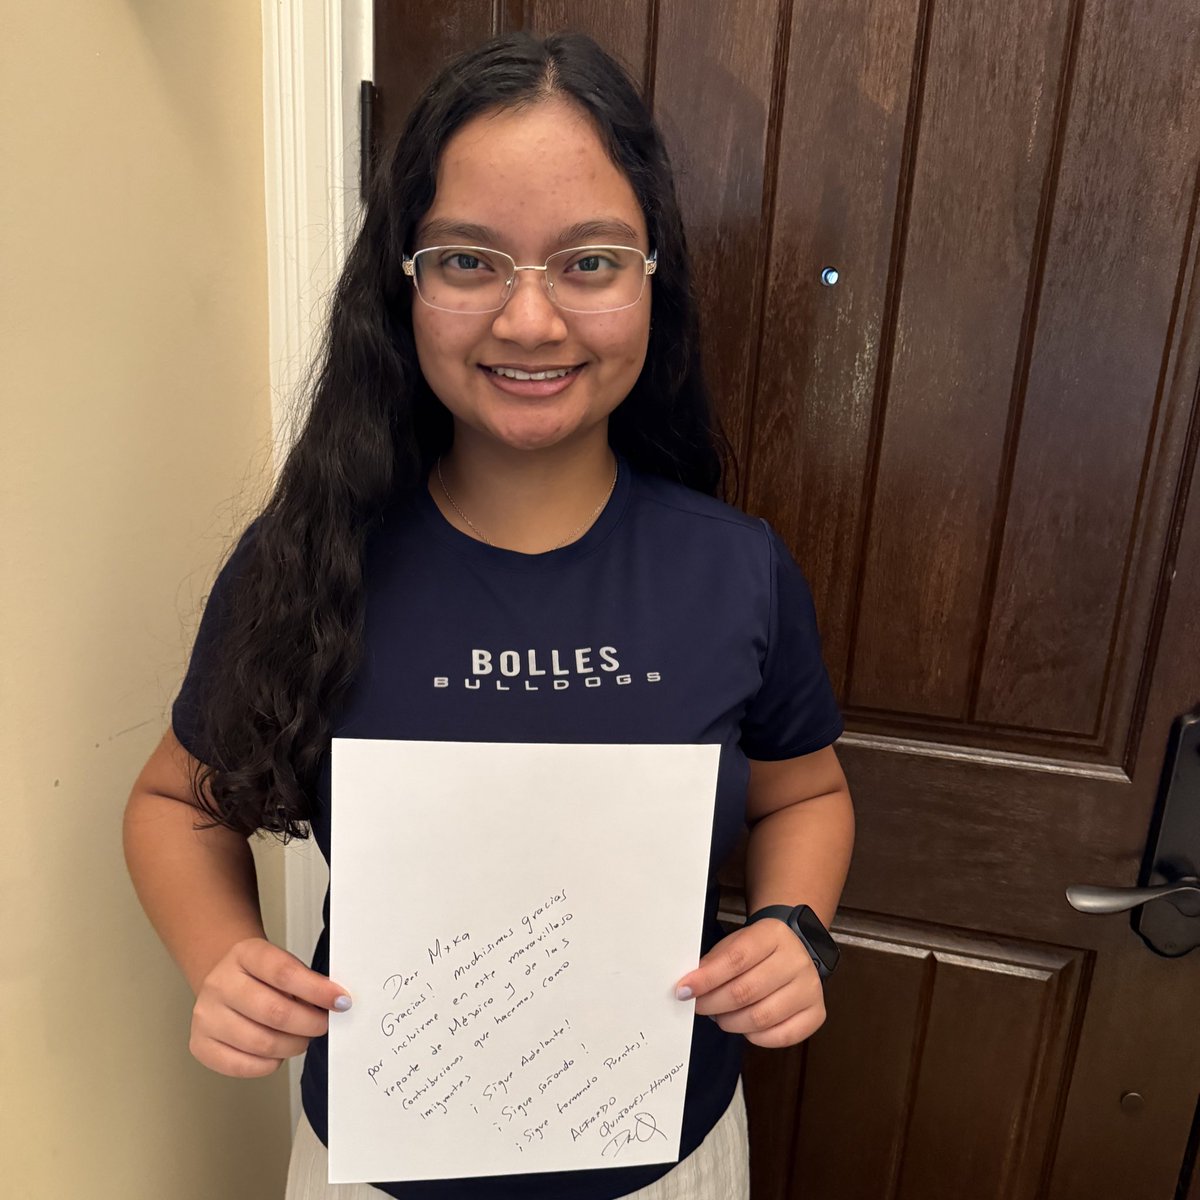 BOLLES
BULLDOGS
Dear Myka
Gracias! Muchisimas gracias
por incluirme en este maravilloso
reporte de México y de las
contribuciones que hacemos como
Imigrantes
¡Sigue Adelante!
¡Sigue soñando!
¡Sigue formando Puentes!
ALFREDO
QUIÑONES-Hinojosa